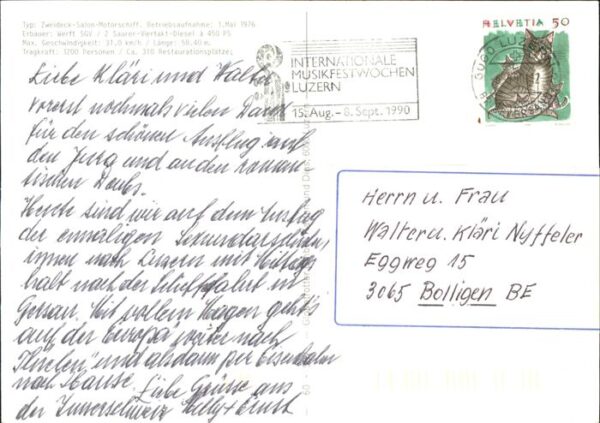 Typ: Zweideck-Salon-Motorschiff, Betriebsaufnahme: 3.Mai 1976
Erbauer: Werft SGV / 2 Saurer-Viertakt-Diesel à 450 PS
Max. Geschwindigkeit: 31,0 km/h / Länge: 58.40 m,
Tragkraft: 1200 Personen / Ca. 310 Restaurationsplätze;
Liebe Kläri und Walter
vorerst nochmals vielen Dank
für den schönen Ausflug auf
den Jura und an den roman
tischen Doubs.
Heute sind wir auf dem Ausflug
der ehmaligen Sekundarschüler
innen nach Luzern mit Mittags
halt nach der Schifffahrt in
Gersau. Mit vollem Magen geht's
auf der "Europa" weiter nach
Flüelen und alsdann per Eisenbahn
nach Hause. Liebe Grüsse aus
der Innerschweiz Willy + Ernst
INTERNATIONALE
MUSIKFESTWOCHEN
LUZERN
15. Aug. - 8. Sept. 1990
HELVETIA 50
6000 LUZERN
Herrn u. Frau
Walter u. Kläri Nyffeler
Eggweg 15
3065 Bolligen BE